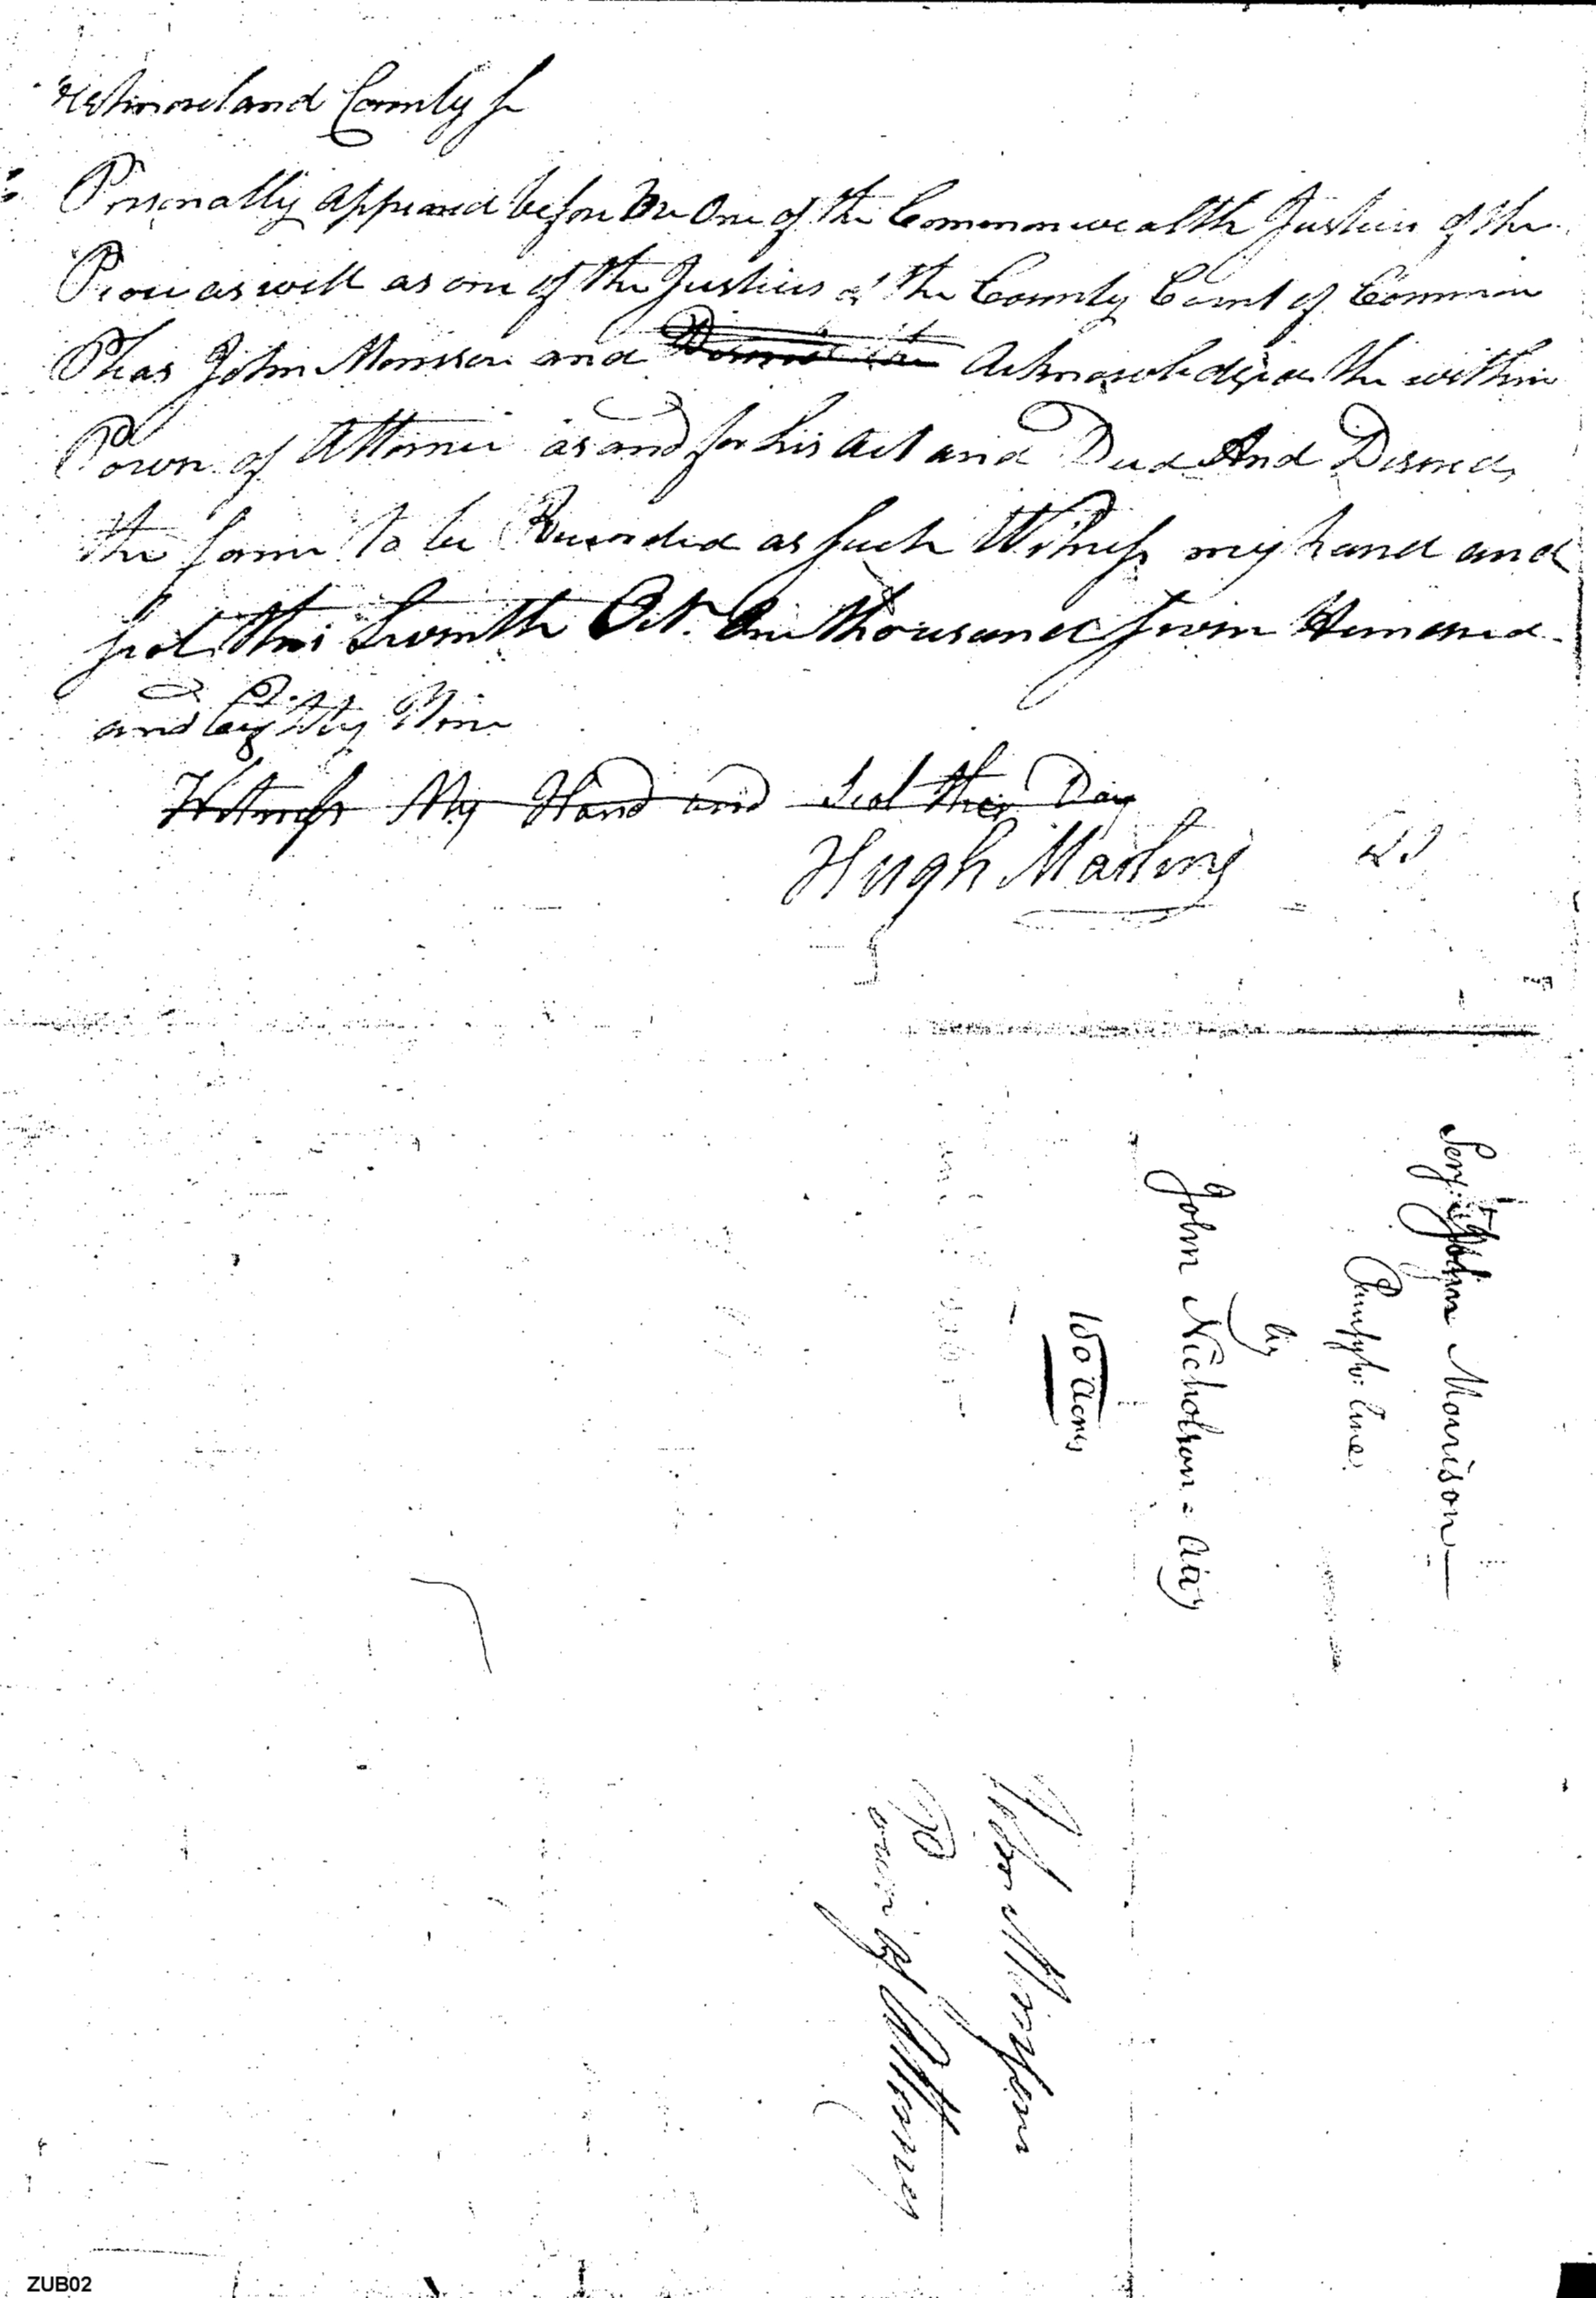 Westmoreland County ss
Personally appeared before Me One of the Commonwealth Justices of the
Peace as well as one of the Justices of the County Court of Common
Pleas John Morrison and Acknowledged the within
Power of Attornie as and for his act and Deed And Desired
the same to be Recorded as such Witness my hand and
seal this Seventh Oct. One thousand seven Hundred
and Eighty Nine
Witness My Hand and Seal this Day
Hugh Martin
Serjt. John Morrison
Pennsyla: Line
by
John Nicholson = Atty
150 acres
John Morrison
Power of Attorney
ZUB02